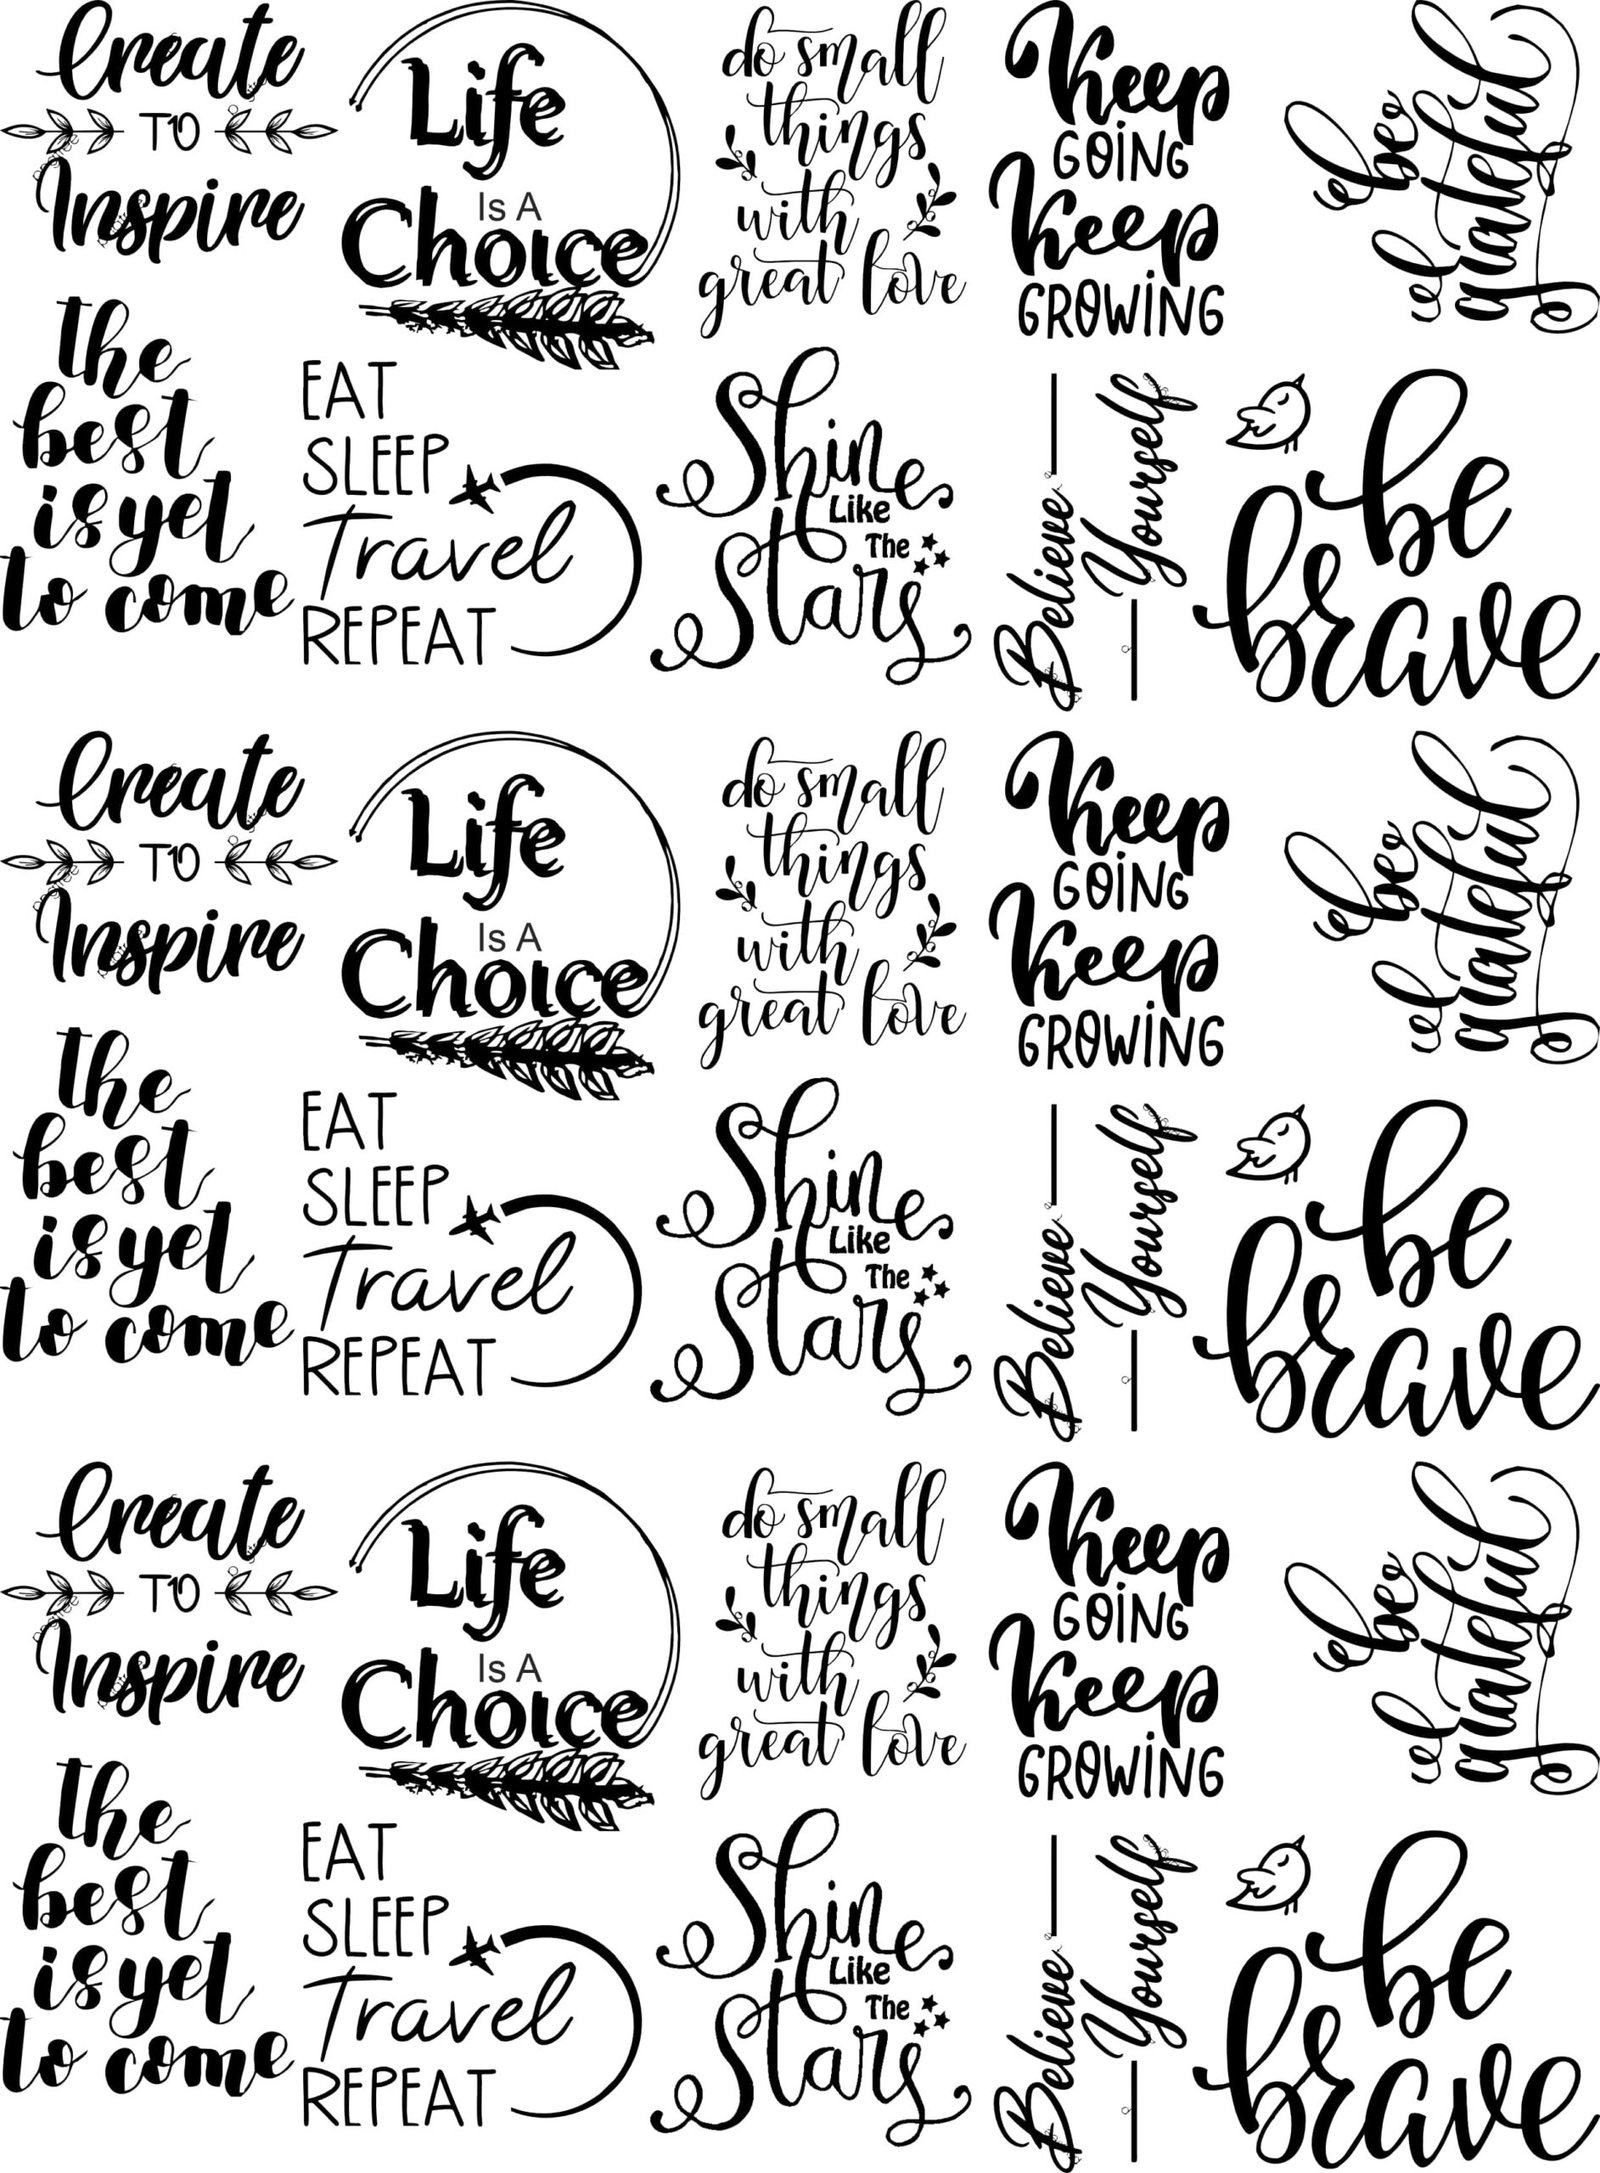 Create
TO
Inspire
Life
Is A
Choice
do small
things
with
great love
Keep
GOING
Keep
GROWING
be
grateful
the
best
is yet
to come
EAT
SLEEP
Travel
REPEAT
Shine
Like
The
Stars
Believe
Yourself
be
brave
Create
TO
Inspire
Life
Is A
Choice
do small
things
with
great love
Keep
GOING
Keep
GROWING
be
grateful
the
best
is yet
to come
EAT
SLEEP
Travel
REPEAT
Shine
Like
The
Stars
Believe
Yourself
be
brave
Create
TO
Inspire
Life
Is A
Choice
do small
things
with
great love
Keep
GOING
Keep
GROWING
be
grateful
the
best
is yet
to come
EAT
SLEEP
Travel
REPEAT
Shine
Like
The
Stars
Believe
Yourself
be
brave